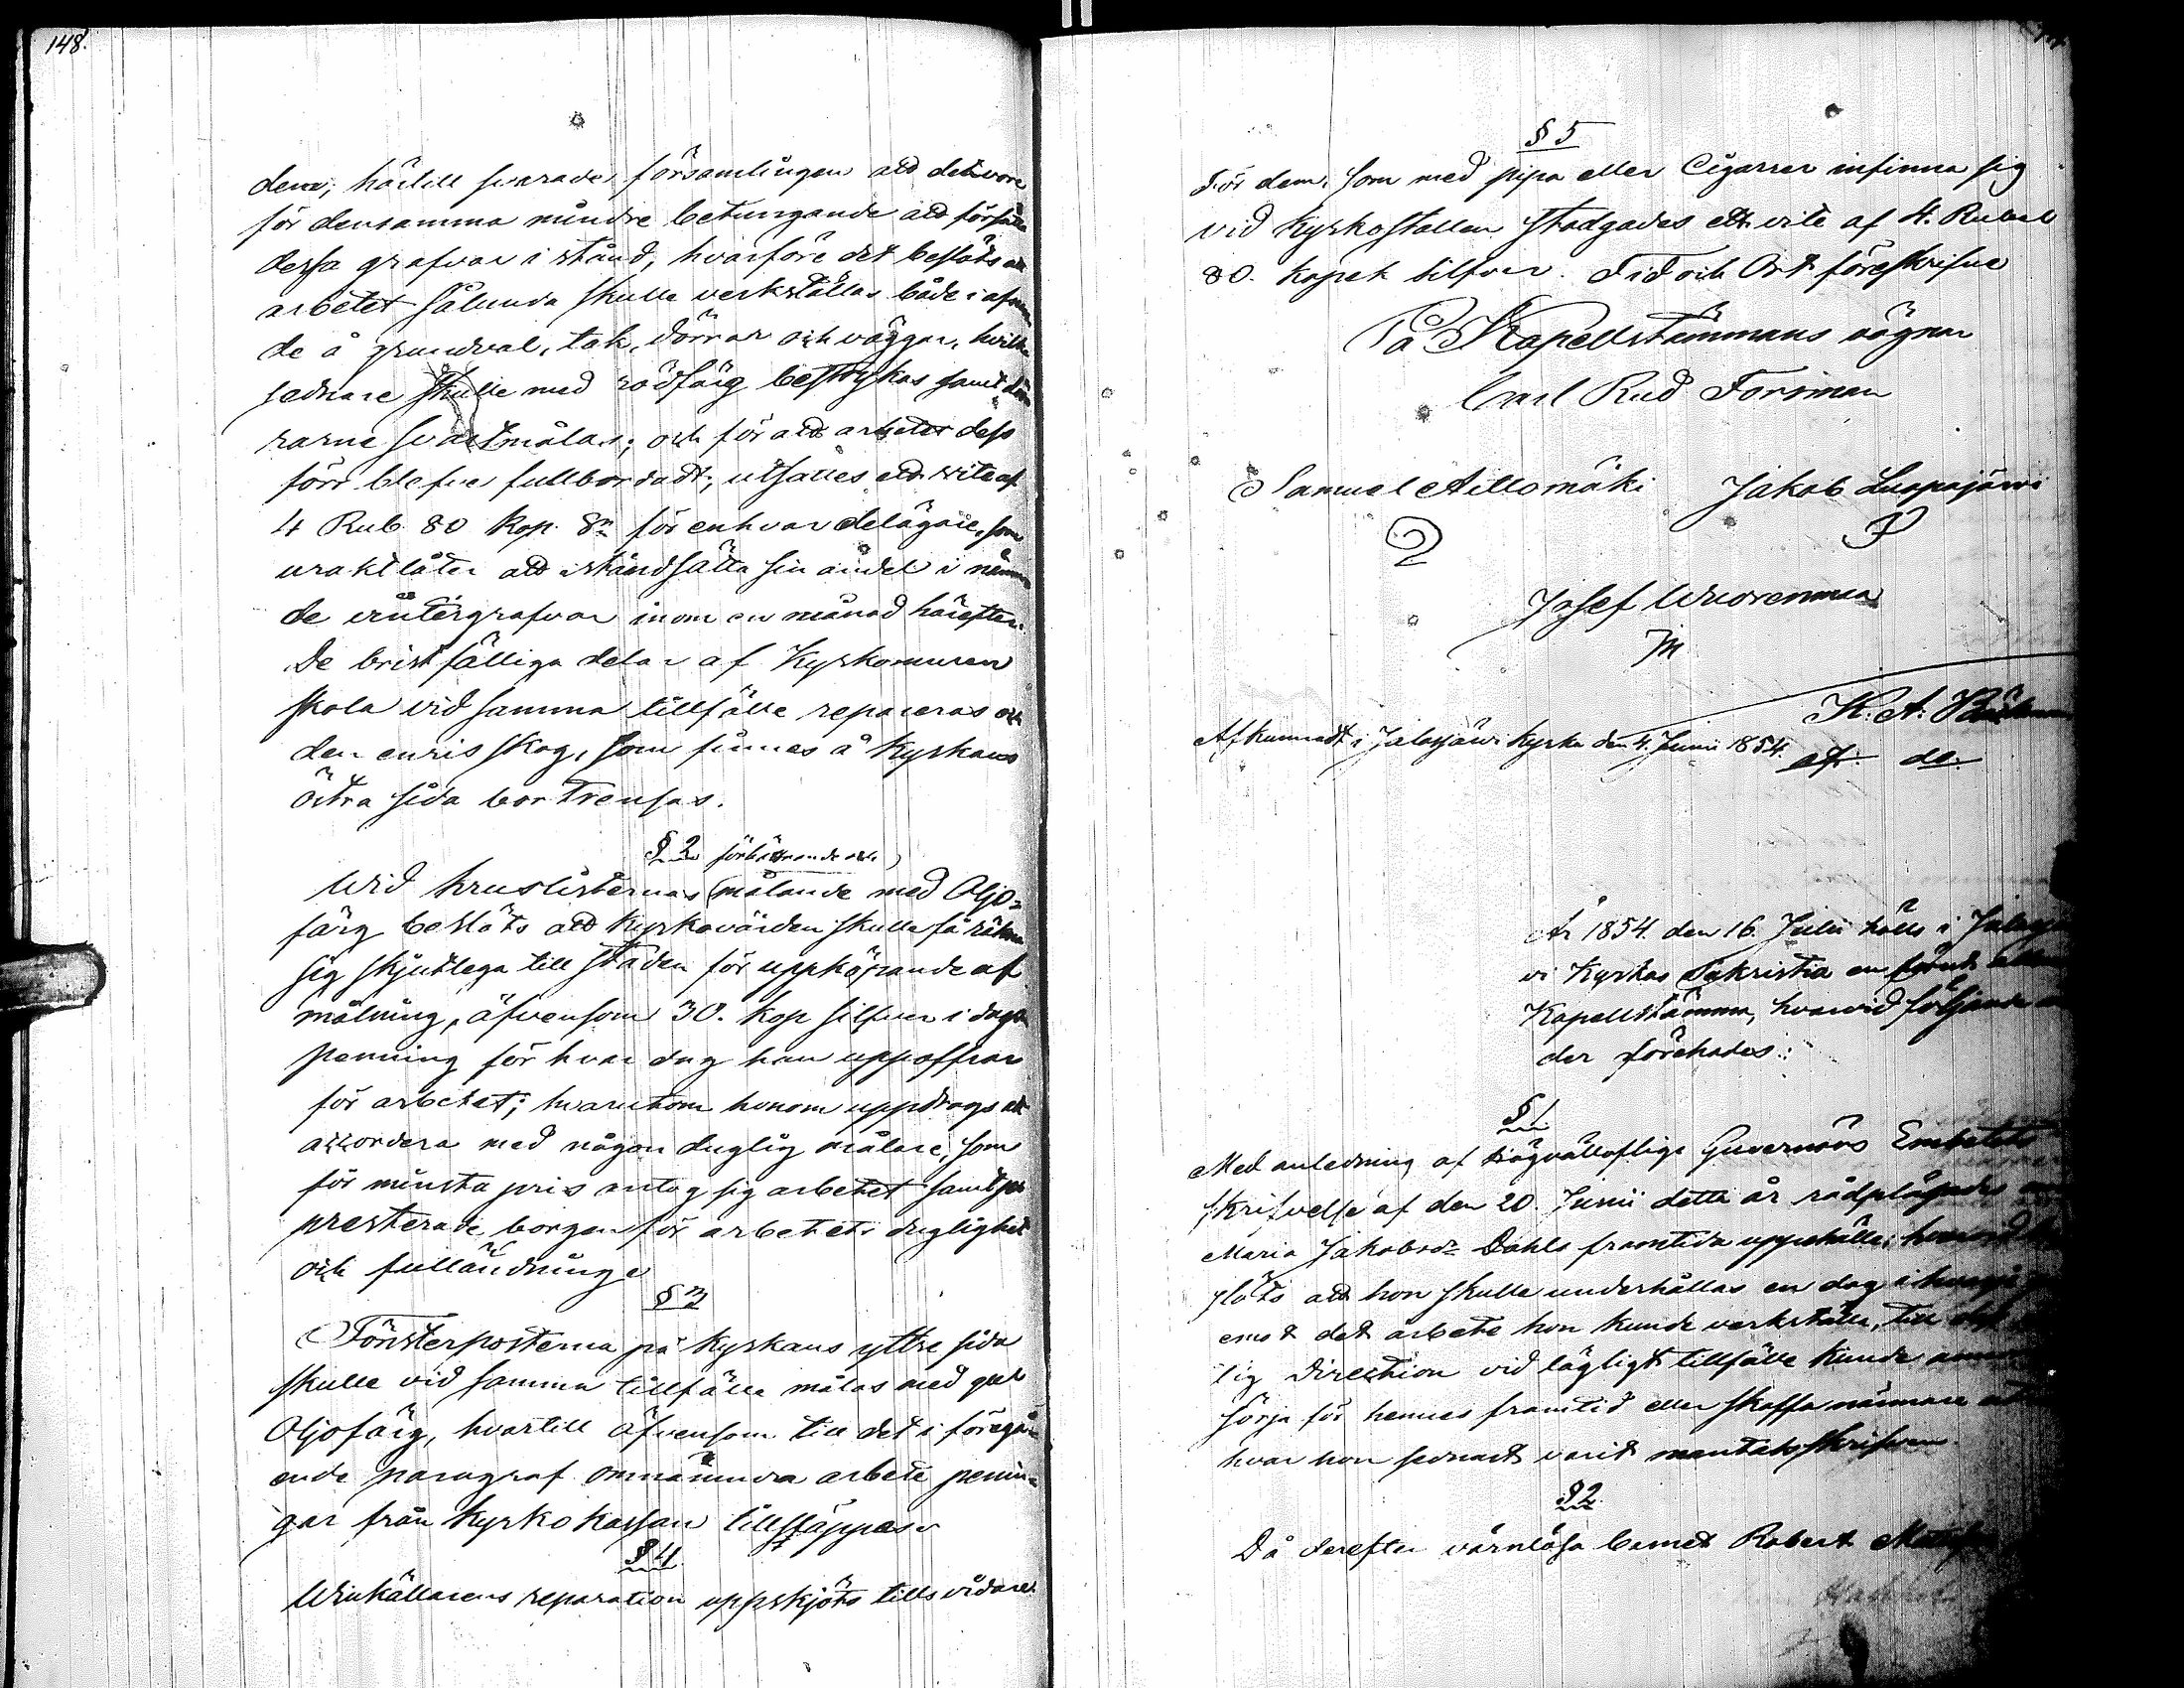 148.
dem; härtill svarade församlingen att det vore
för densamma mindre betungande att försätta
dessa grafvar i stånd, hvarföre det beslöts att
arbetet sålunda skulle verkställas både i afseen
de å grundval, tak, dörrar och väggar, hvilka
sednare skulle med rödfärg bestrykas samt dör
rarne svartmålas; och för att arbetet dess
förr blefve fullbordadt, utsattes ett vite af
4 Rub. 80 Kop. Sr för enhvar delägare, som
uraktlåter att iståndsätta sin andel i nämn
de vintergrafvar inom en månad härefter.
De bristfälliga delar af Kyrkomuren
skola vid samma tillfälle repareras och
den enrisskog, som finnes å Kyrkans
östra sida bortrensas.
§ 2 förbättrande och
Wid kruslisternas målande med Oljo=
färg beslöts att Kyrkovärden skulle få räkna
sig skjutslega till staden för uppköpande af
målning, äfvensom 30. kop silfver i dags
penning för hvar dag han uppoffrar
för arbetet; hvarutom honom uppdrogs att
accordera med någon duglig målare, som
för minsta pris antog sig arbetet samt
presterade borgen för arbetets duglighet
och fulländning
§ 3
Fönsterposterna på Kyrkans yttre sida
skulle vid samma tillfälle målas med gul
Oljofärg, hvartill äfvensom till det i föregå=
ende paragraf omnämnda arbete pennin=
gar från Kyrkokassan tillsläppas.
§ 4
Winkällarens reparation uppskjöts tills vidare.
§ 5
För dem, som med pipa eller Cigarrer infinna sig
vid Kyrkostallen stadgades ett vite af 4. Rubel
80. Kopek silfver. Tid och Ort föreskrifne
På Kapellstämmans vägnar
Carl Rud Forsman
Samuel Aillomäki Jakob Luopajärvi
Josef Wuorenmaa
K. A.
Afkunnadt i Jalasjärvi Kyrka den 4. Junii 1854. af
År 1854. den 16. Julii hölls i
vi Kyrkas Sakristia en
Kapellstämma, hvarvid följande
der förehades:
§ 1
Med anledning af Högvälloflige Guvernörs Embetets
skrifvelse af den 20. Junii detta år rådplägades
Maria Jakobsdr Dahls framtida uppehälle; hvarvid
slöts att hon skulle underhållas en dag i
emot det arbete hon kunde verkställa, till
lig direction vid lägligt tillfälle kunde
sörja för hennes framtid eller skaffa närmare
hvar hon sednast varit mantalsskrifven.
§ 2
Då derefter värnlösa barnet Robert